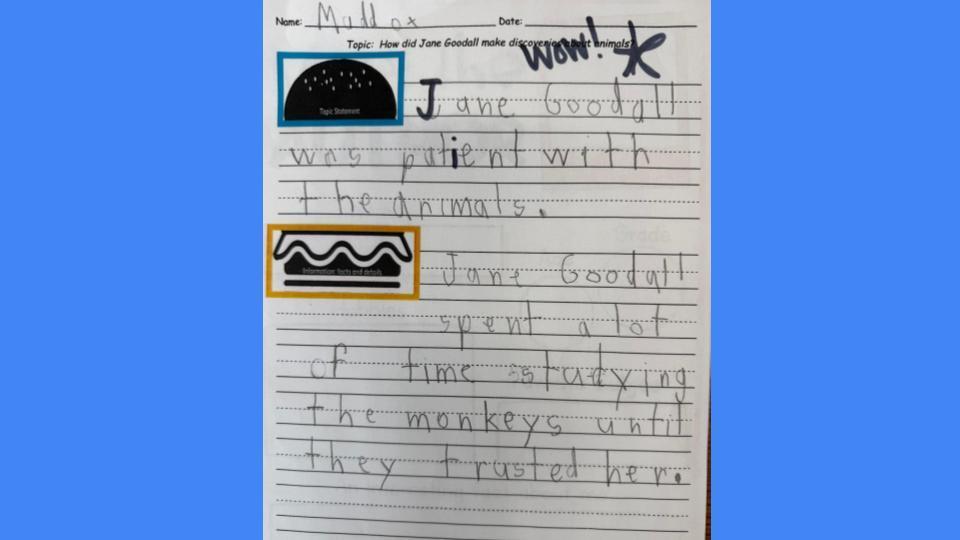 Name: Maddox Date:
Topic: How did Jane Goodall make discoveries about animals?
WOW!
Topic Statement
Jane Goodall
was patient with
the animals.
Information: facts and details
Jane Goodall
spent a lot
of time sstudying
the monkeys until
they trusted her.